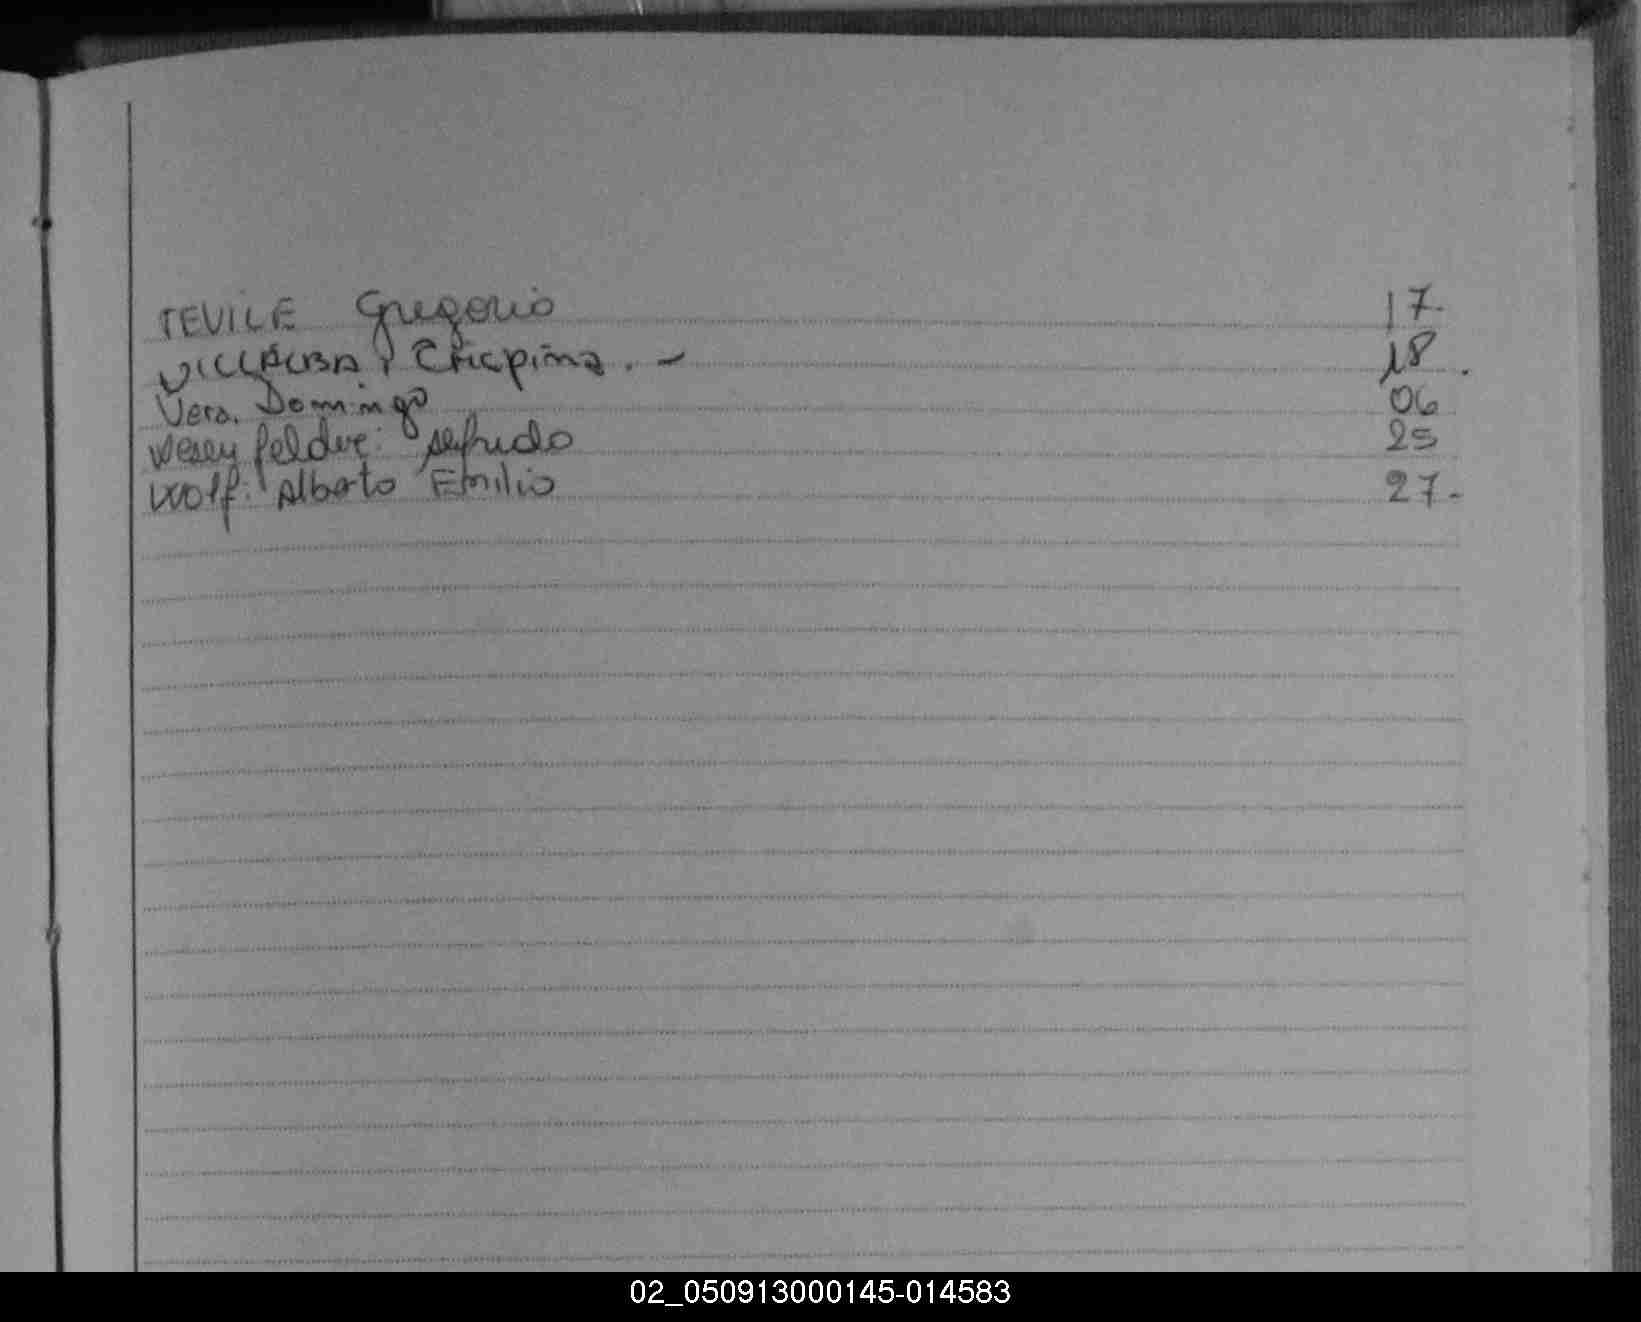 TEVILE Gregorio 17.
VILLALBA, Crispina. - 18.
Vera. Domingo 06
felder: Alfredo 25
Wolf: Alberto Emilio 27.
02_050913000145-014583